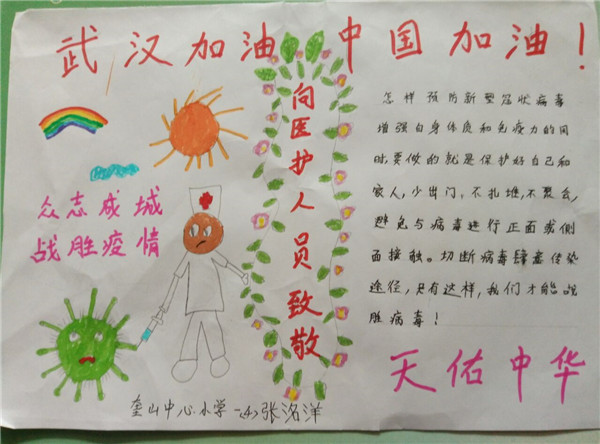 武汉加油 中国加油！
众志成城
战胜疫情
向医护人员致敬
怎样预防新型冠状病毒
增强自身体质和免疫力的同
时,要做的就是保护好自己和
家人,少出门,不扎堆,不聚会,
避免与病毒进行正面或侧
面接触。切断病毒传染
途径,只有这样,我们才能战
胜病毒！
天佑中华
中心小学 张洺洋